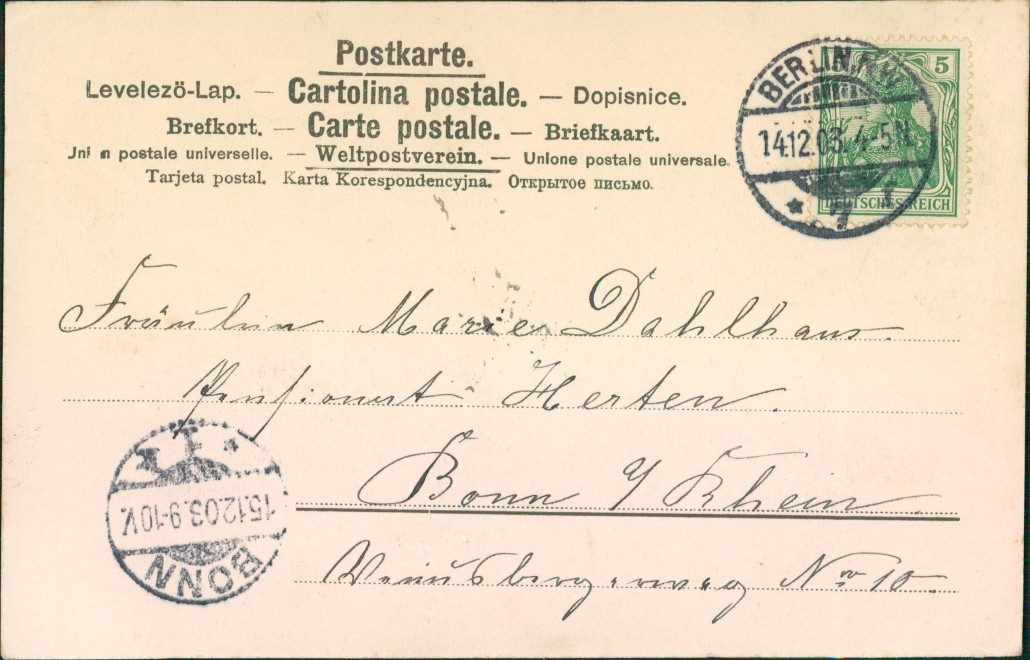 Postkarte.
Levelezö-Lap. — Cartolina postale. — Dopisnice.
Brefkort. — Carte postale. — Briefkaart.
Uni n postale universelle. — Weltpostverein. — Unione postale universale.
Tarjeta postal. Karta Korespondencyjna. Открытое письмо.
BERLIN N.W.
14.12.03. 4-5N.
* 7
5
DEUTSCHES REICH
Fräulein Marie Dahlhaus.
Pensionat Herten.
Bonn a/ Rhein
Venusbergerweg No 10.
* 1
15.12.03. 9-10V.
BONN